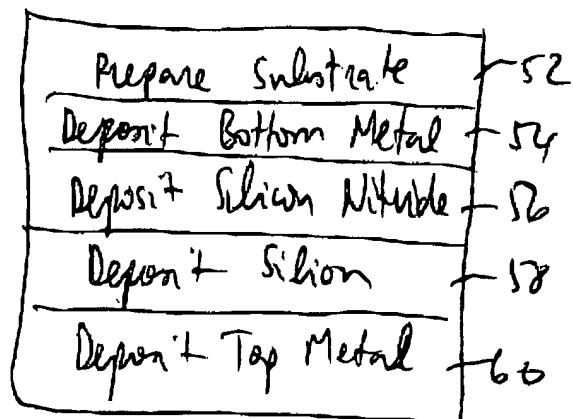 Prepare Substrate 52
Deposit Bottom Metal 54
Deposit Silicon Nitride 56
Deposit Silion 58
Deposit Top Metal 60